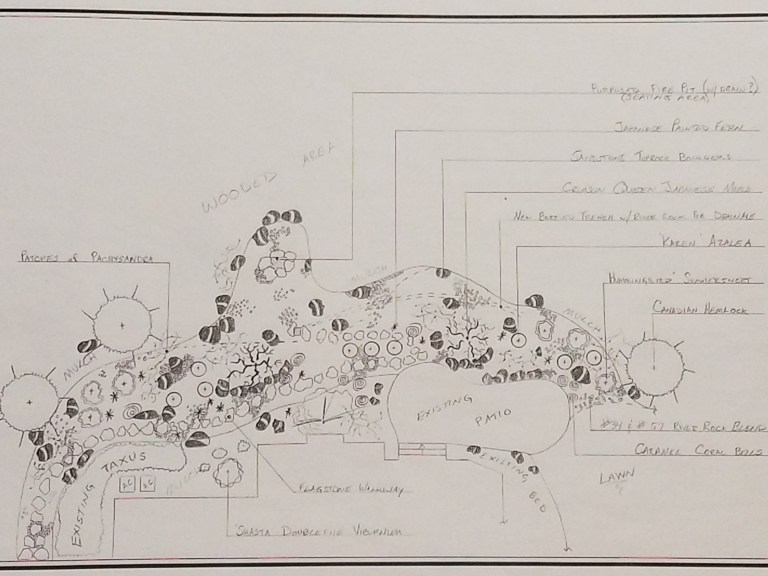 Proposed Fire Pit (w/Drain?)
(Seating Area)
Japanese Painted Fern
Sandstone Toprock Boulders
Crimson Queen Japanese Maple
New Buried Trench w/ River Rock for Drainage
'Karen' Azalea
'Hummingbird' Summersweet
Canadian Hemlock
Wooded Area
Patches of Pachysandra
Mulch
Mulch
Mulch
Existing Patio
#34 & #57 River Rock Blend
Caramel Coral Bells
Lawn
Existing Bed
Existing Taxus
Mulch
AC
AC
Flagstone Walkway
'Shasta' Doublefile Viburnum